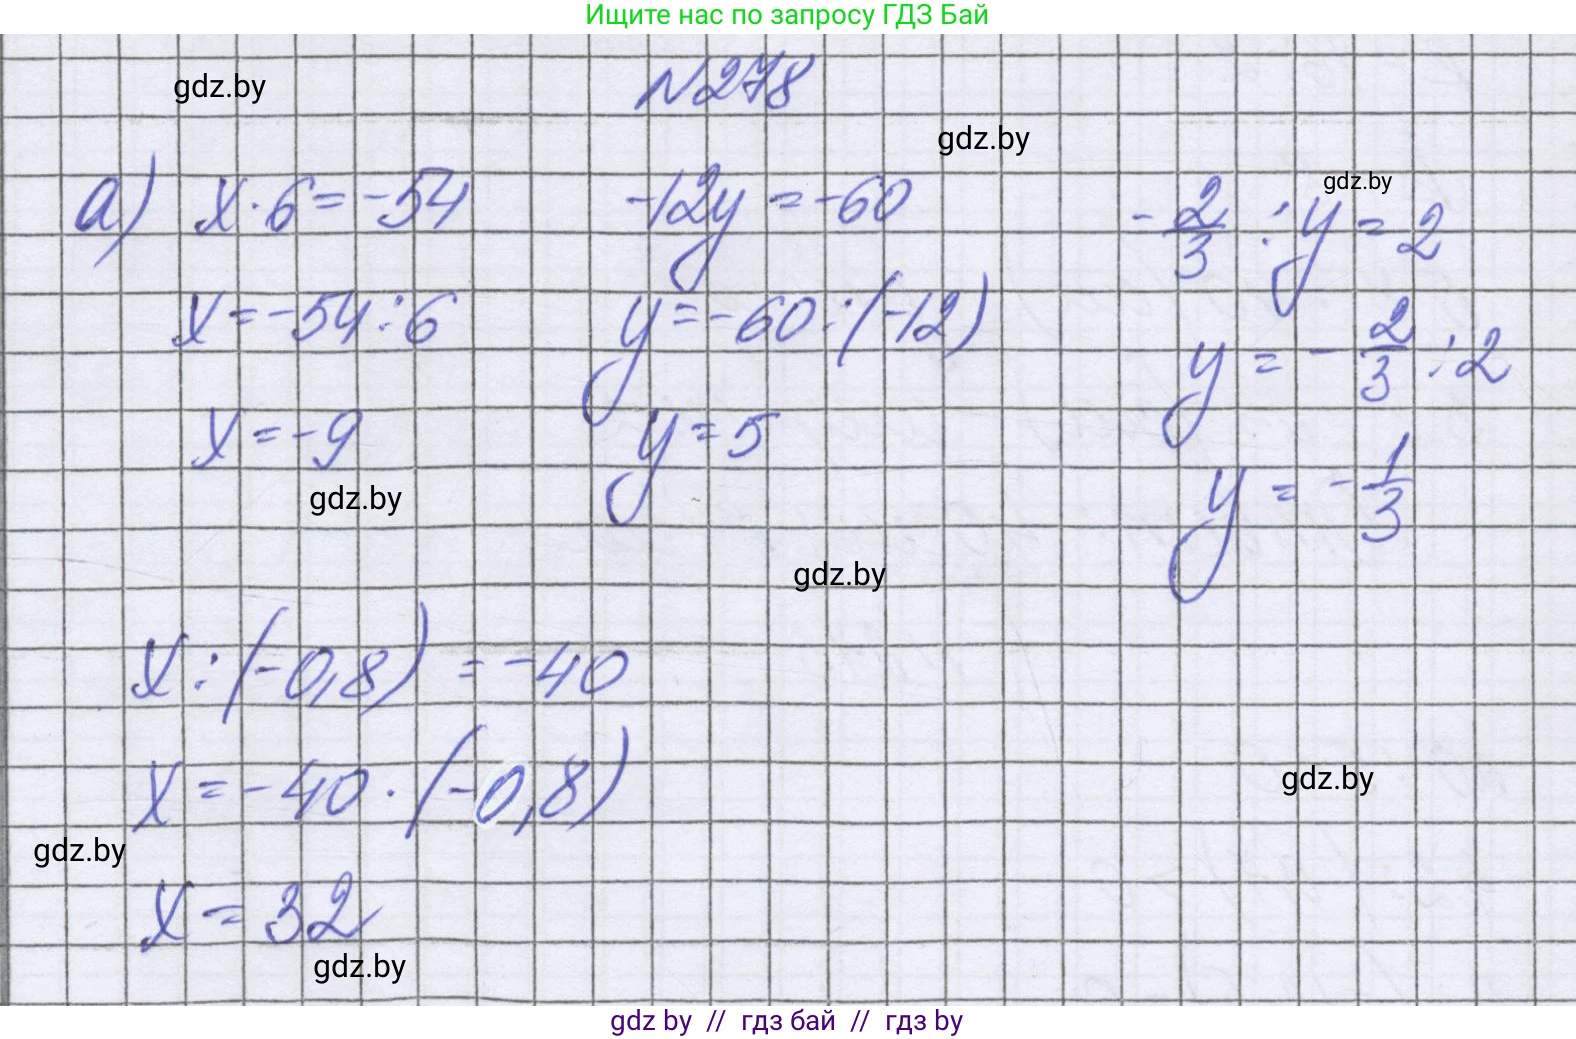 Ищите нас по запросу ГДЗ Бай
gdz.by
N278
gdz.by
а) x · 6 = -54
-12y = -60
-2/3 : y = 2
gdz.by
x = -54 : 6
y = -60 : (-12)
y = -2/3 : 2
x = -9
y = 5
y = -1/3
gdz.by
gdz.by
x : (-0,8) = -40
x = -40 · (-0,8)
gdz.by
gdz.by
x = 32
gdz.by
gdz by // гдз бай // гдз by